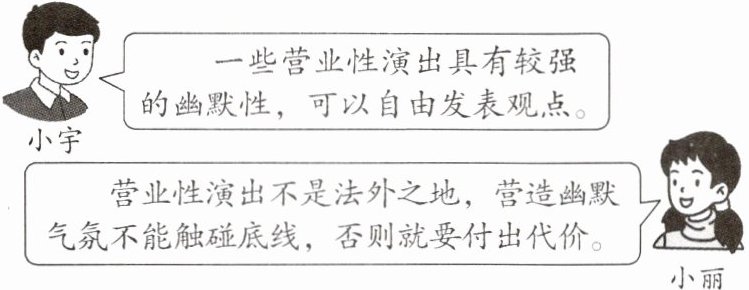 一些营业性演出具有较强
的幽默性，可以自由发表观点。
小宇
营业性演出不是法外之地，营造幽默
气氛不能触碰底线，否则就要付出代价。
小丽